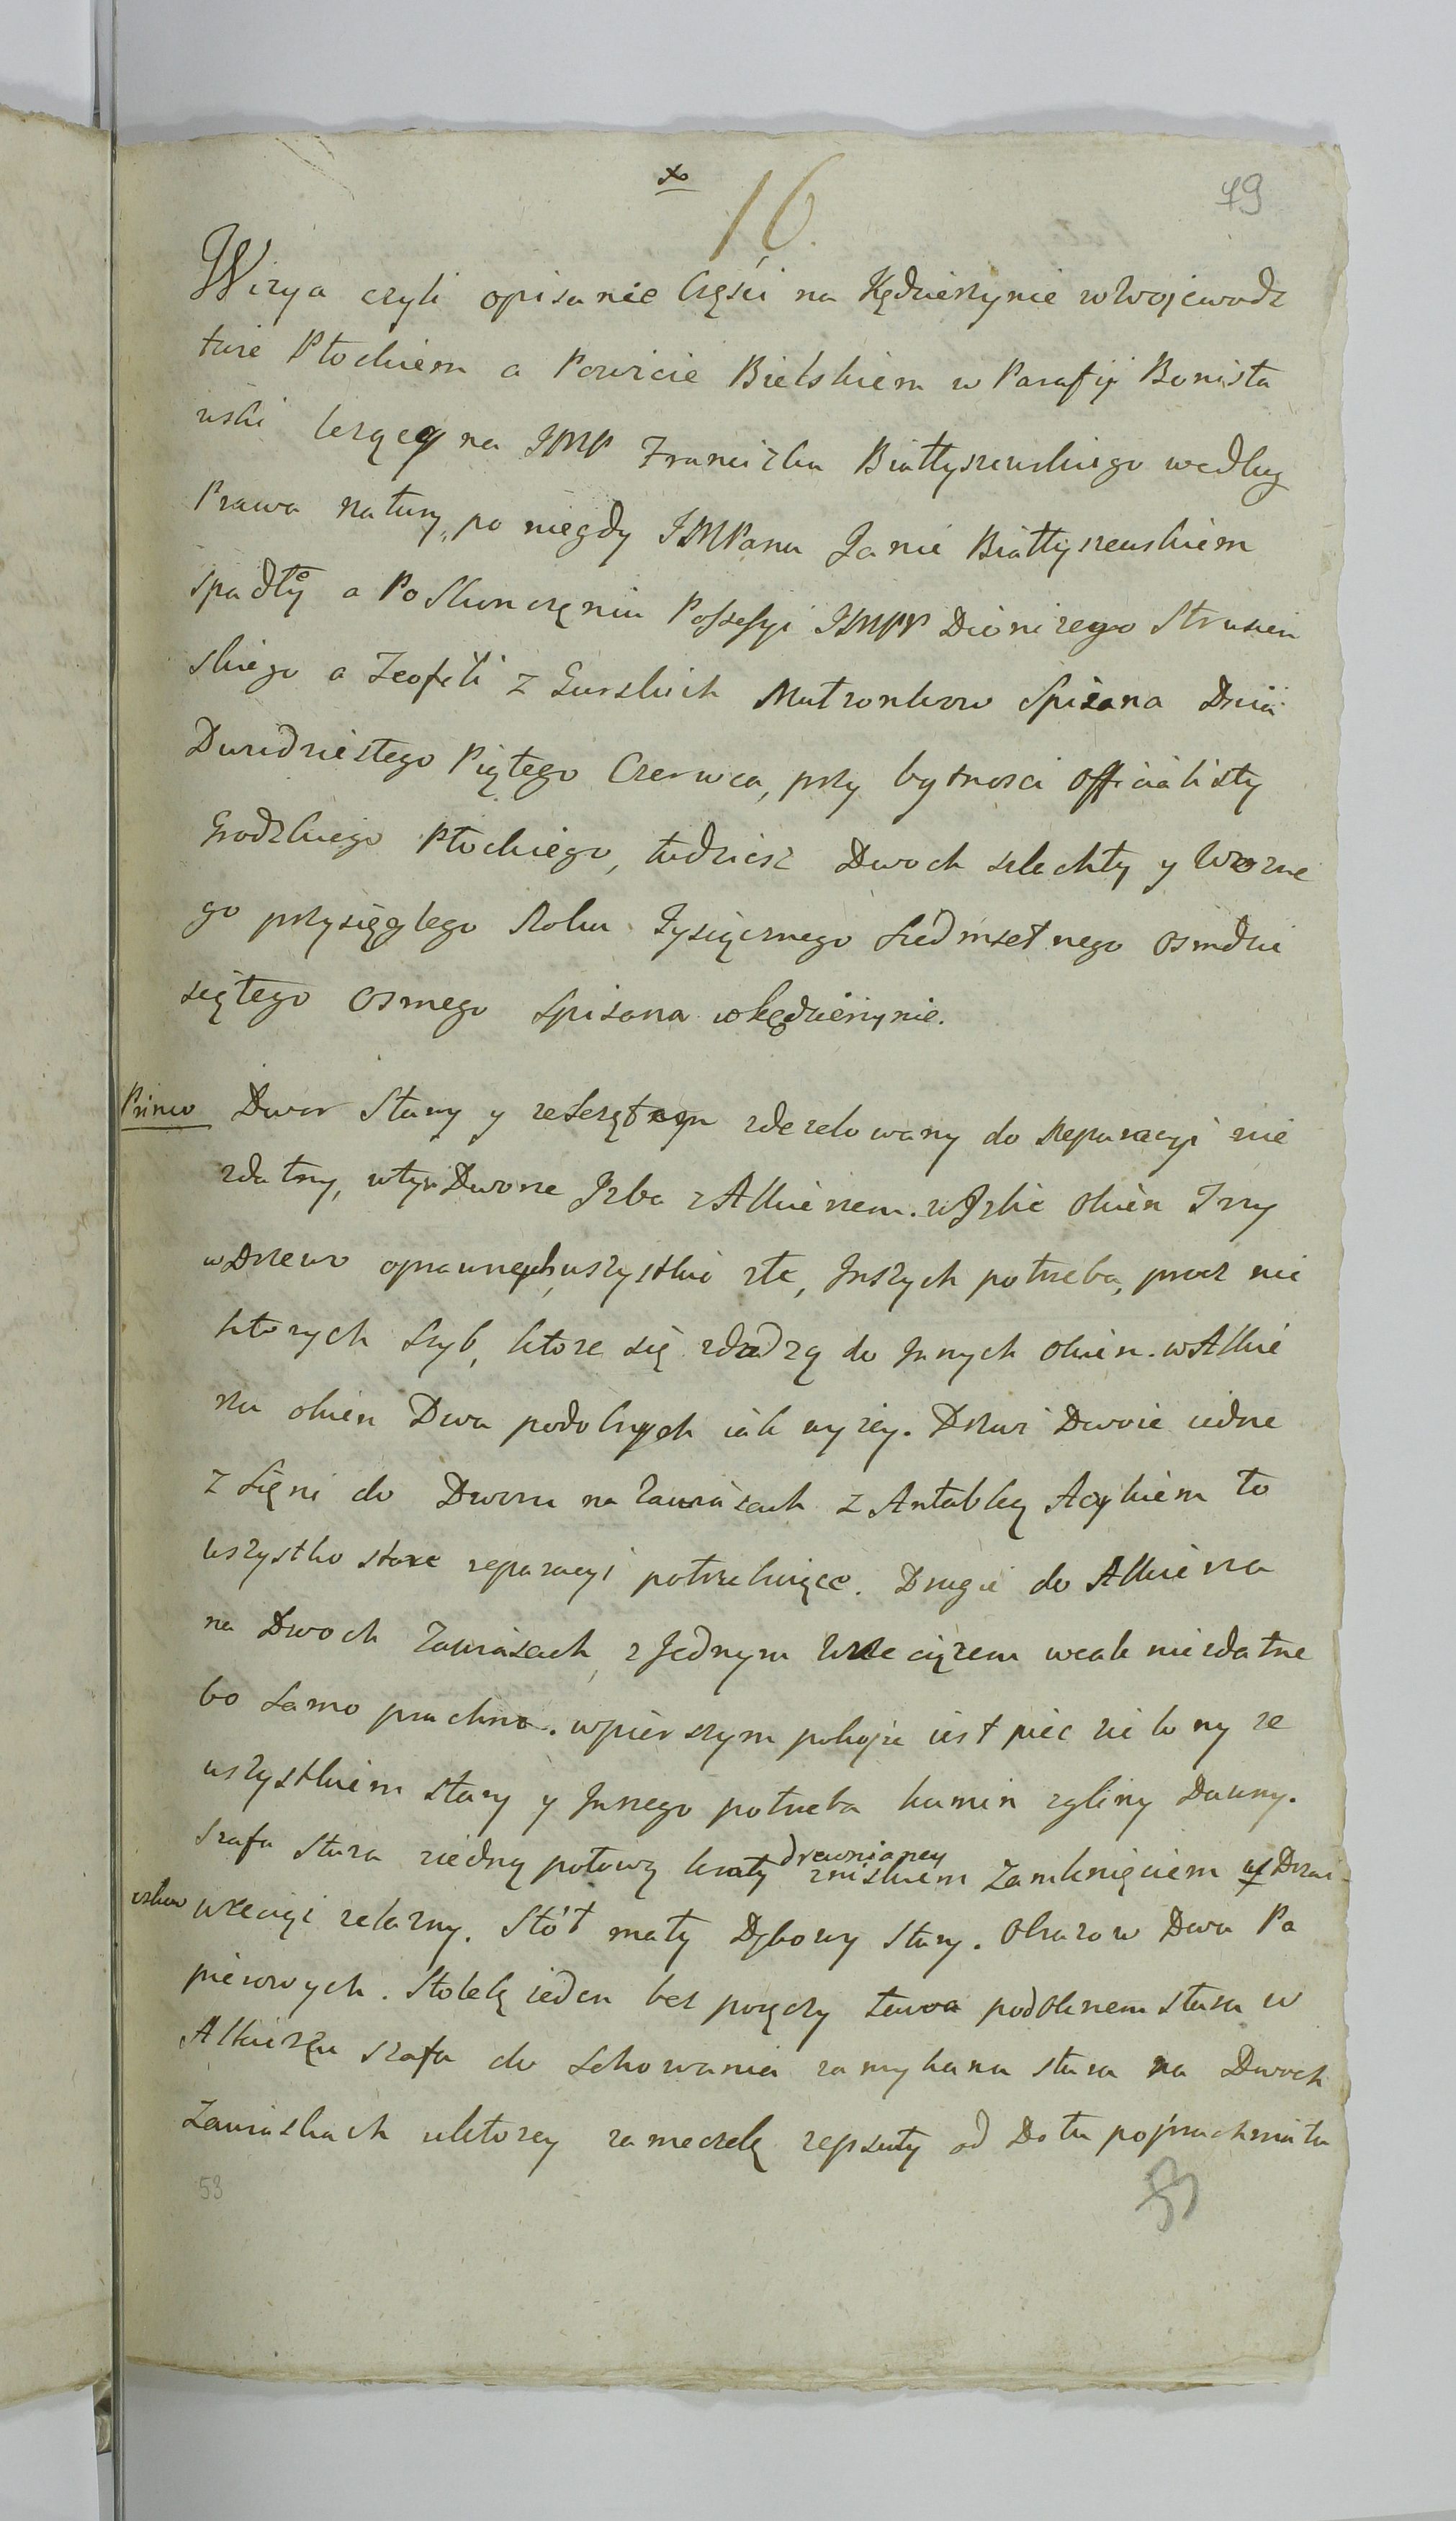 x
16.
49
Wizya czyli opisanie Części na Kędzierzynie w Wojewodz
twie Płockiem a Powicie Bielskiem w Parafji Bonisła
wski leżącey na JMP Franciszka Białłyszewskiego według
Prawa natury, po niegdy JMPanu Janie Białłyszewskiem
spadły a Poskonczęniu Possessyi JMPP Dionizego Strusień
skiego a Teofili z Gurskich Małżonkow Spisana Dnia
Dwudziestego Piątego Czerwca, przy bytnosci officialisty
Grodzkiego Płockiego, tudziesz Dwoch szlachty y Wozne
go przysięgłego Roku Tysiącznego Siedmsetnego osmdzie
siętego osmego Spisana w Kędzierzynie.
Primo Dwor Stary y zdezelowany do Reparacyi nie
zdatny, wtym Dworze Izba z Alkierzem. w Izbie Okien Trzy
w Drzewo oprawnych, wszystkie złe, Inszych potrzeba, procz nie
ktorych Szyb, ktore się zdadzą do Innych Okien. w Alkie
rzu okien Dwa podobnych iak wyżey. Drzwi Dwoie iedne
z Sięni do Dworu na Zawiasach z Antabką Haczykiem to
wszystko stare reparacyi potrzebuiące. Drugie do Alkierza
na Dwoch Zawiasach, z Jednym Wrzeciązem wcale niezdatne
bo Samo pruchno. w pierszym pokoju iest piec zielony ze
wszystkiem stary y Inszego potrzeba kumin zgliny Dawny.
Szafa Stara ziedną połową kraty drewnianey zniskiem Zamknięciem w Drzwi
wrzeciąż zelazny. Stół mały Dębowy Stary. Obrazow Dwa Pa
pierowych. Stołek ieden bez poręczy Ława podOknem stara w
Alkierzu Szafa do Schowania zamykana stara na Dwoch
Zawiaskach uktorey zameczek zepsuty od Dołu popruchniała
53